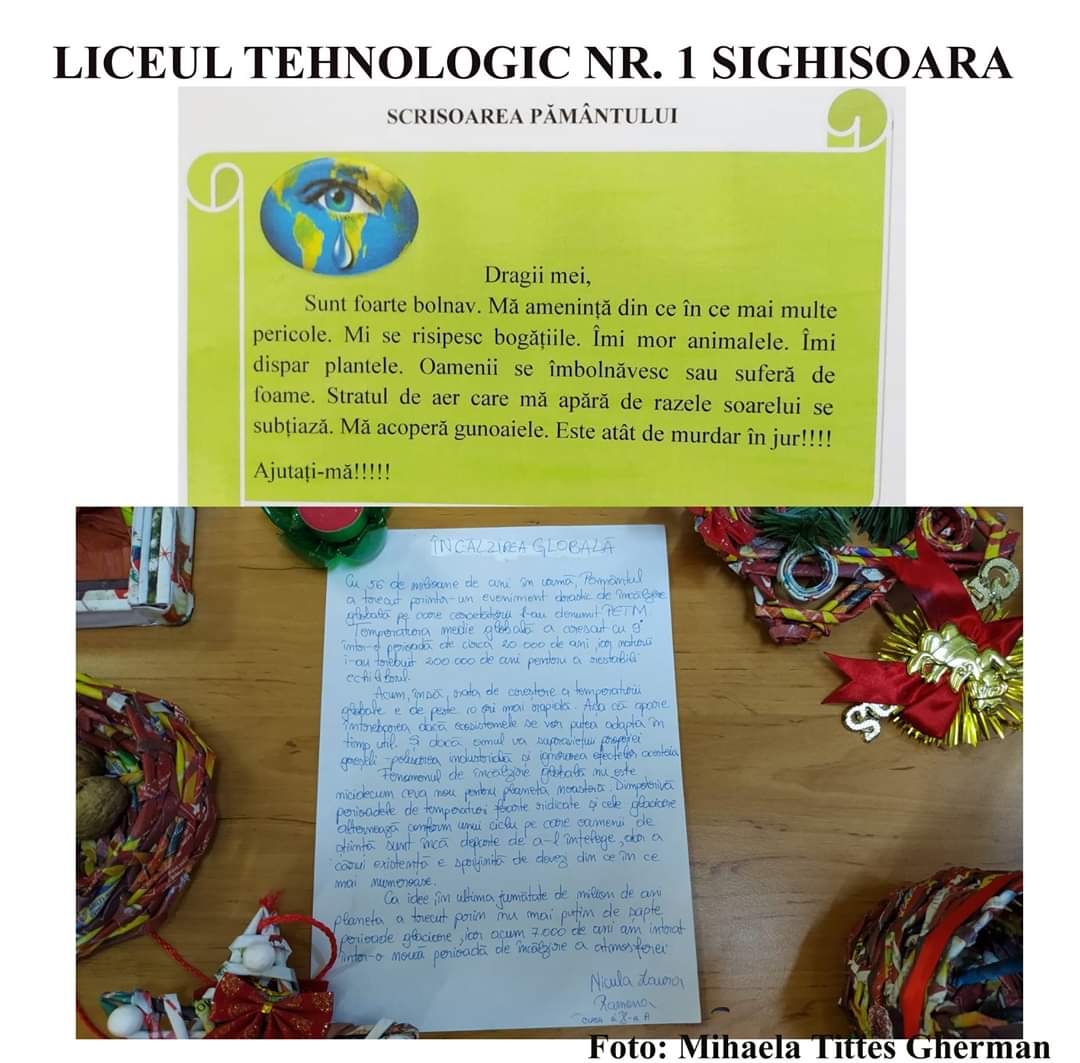 LICEUL TEHNOLOGIC NR. 1 SIGHISOARA
SCRISOAREA PĂMÂNTULUI
Dragii mei,
Sunt foarte bolnav. Mă amenință din ce în ce mai multe
pericole. Mi se risipesc bogățiile. Îmi mor animalele. Îmi
dispar plantele. Oamenii se îmbolnăvesc sau suferă de
foame. Stratul de aer care mă apără de razele soarelui se
subțiază. Mă acoperă gunoaiele. Este atât de murdar în jur!!!!
Ajutați-mă!!!!!
ÎNCĂLZIREA GLOBALĂ
Cu 56 de milioane de ani în urmă, Pământul
a trecut printr-un eveniment drastic de încălzire
globală pe care cercetătorii l-au denumit PETM
Temperatura medie globală a crescut cu 9°
într-o perioadă de circa 20 000 de ani, iar naturii
i-au trebuit 200 000 de ani pentru a restabili
echilibrul.
Acum, însă, rata de creștere a temperaturii
globale e de peste 10 ori mai rapidă. Așa că apare
întrebarea dacă ecosistemele se vor putea adapta în
timp util. Și dacă omul va supraviețui propriei
greșeli - poluarea industrială și ignorarea efectelor acesteia
Fenomenul de încălzire globală nu este
nicidecum ceva nou pentru planeta noastră. Dimpotrivă
perioadele de temperaturi foarte ridicate și cele glaciare
alternează conform unui ciclu pe care oamenii de
știință sunt încă departe de a-l înțelege, dar a
cărui existență e sprijinită de dovezi din ce în ce
mai numeroase.
Ca idee în ultima jumătate de milion de ani
planeta a trecut prin nu mai puțin de șapte
perioade glaciare, iar acum 7000 de ani am intrat
într-o nouă perioadă de încălzire a atmosferei
Nicula Laura
Ramona
a X-a A
Foto: Mihaela Tittes Gherman